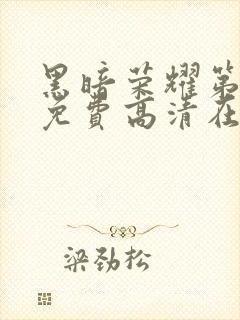 黑暗荣耀第
免费高清在
梁劲松